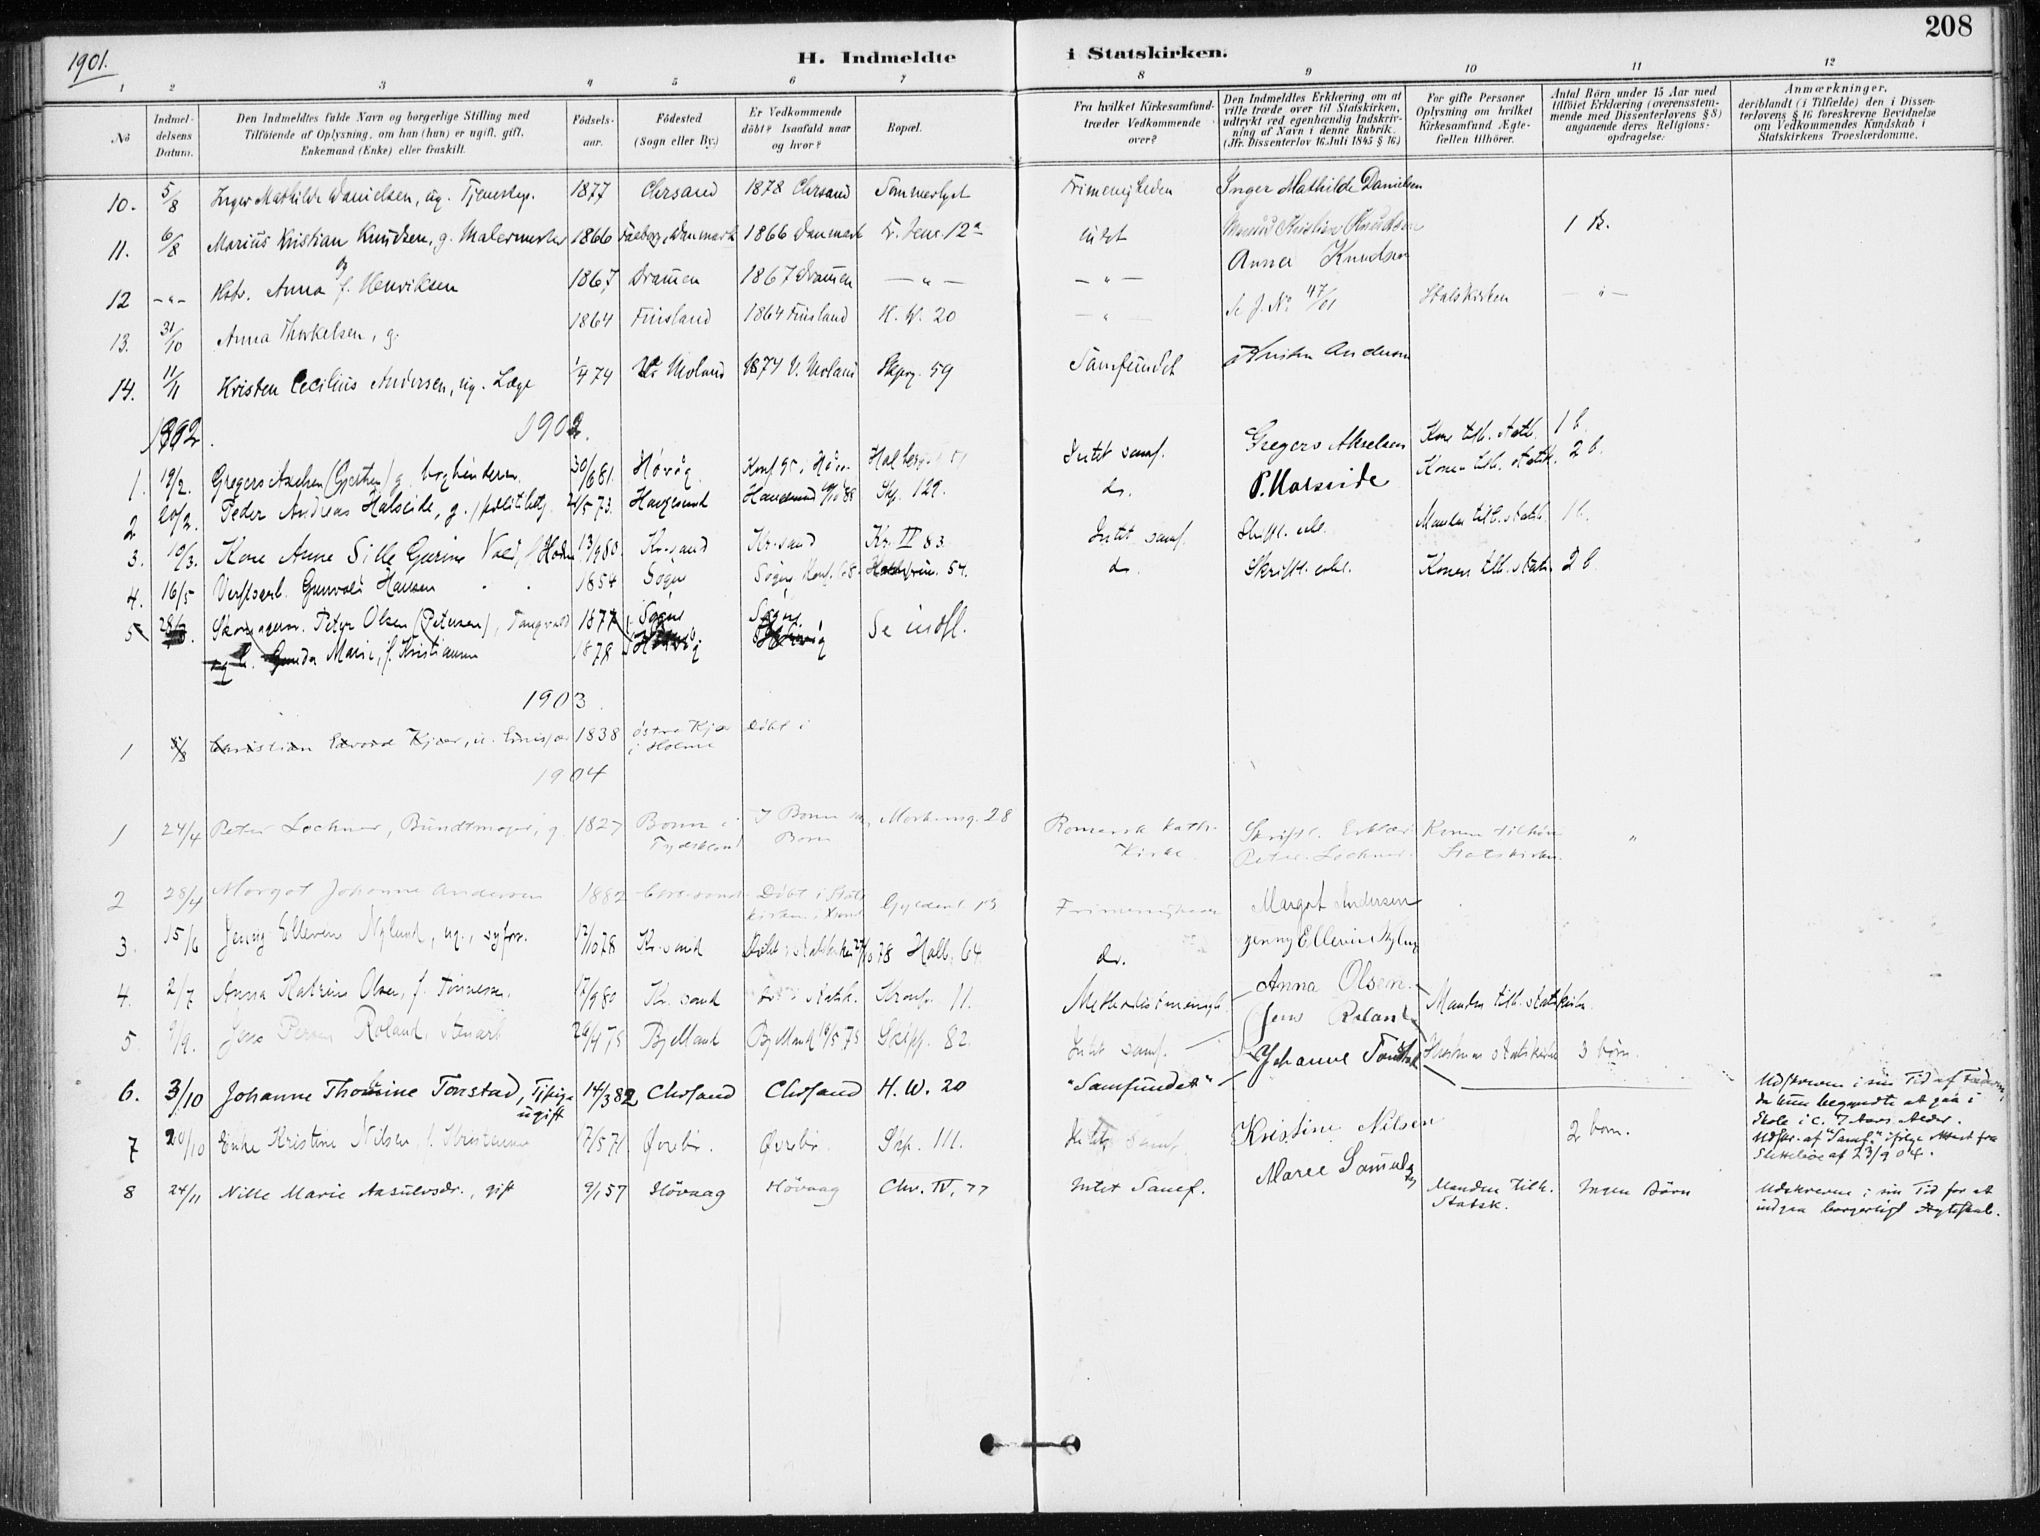 208
1901.
H. Indmeldte i Statskirken.
1 2 3 4 5 6 7 8 9 10 11 12
No
Indmeldelsens Datum.
Den Indmeldtes fulde Navn og borgerlige Stilling med Tilföiende af Oplysning, om han (hun) er ugift, gift, Enkemand (Enke) eller fraskilt.
Födselsaar.
Födested (Sogn eller By.)
Er Vedkommende döbt? Isaafald naar og hvor?
Bopæl.
Fra hvilket Kirkesamfund træder Vedkommende over?
Den Indmeldtes Erklæring om at ville træde over til Statskirken, udtrykt ved egenhændig Indskrivning af Navn i denne Rubrik. (Jfr. Dissenterlov 16 Juli 1845 § 16.)
For gifte Personer Oplysning om hvilket Kirkesamfund Ægtefællen tilhörer.
Antal Börn under 15 Aar med tilföiet Erklæring (overensstemmende med Dissenterlovens § 8) angaaende deres Religionsopdragelse.
Anmærkninger, deriblandt (i Tilfælde) den i Dissenterlovens § 16 foreskrevne Bevidnelse om Vedkommendes Kundskab i Statskirkens Troeslærdomme.
10. 5/8 Inger Mathilde Danielsen, ug. 1877 Chrsand 1878 Chrsand Frimenigheden Inger Mathilde Danielsen
11. 6/8 Marius Kristian Knudsen, g. Malermester 1866 Danmark 1866 Danmark 12a Intet Marius Kristian Knudsen 1 B.
12 -"- og Hstr. Anna f. Henriksen 1867 Dramen 1867 Dramen -"- -"- Anna Knudsen
13. 31/10 Anna Thorkelsen, g. 1864 Finsland 1864 Finsland H. W. 20 -"- Se J. No. 47/01 Statskirken -"-
14. 11/11 Kristen Cecilius Andersen, ug. Læge 1/4 74 V. Moland 1874 V. Moland 59 Samfundet Kristen Andersen
1902. 1902.
1. 19/2. Gregers Axelsen g. 30/6 81. Høvåg Intet samf. Gregers Akselsen Kone tilh. Statk. 1 b.
2 20/2. Peder Andreas Halseide, g. 73. Haugesund Haugesund Skp. 129. do. P. Halseide Konen tilh. statk. 2 b.
3. 10/3. Kone Anne Sille 13/9 80. Kr.sand Kr.sand Kr. IV 83. Intet samf. Skriftl. erkl. Manden tilh. statsk. 1 b.
4. 16/5 Verftsarb. Gunvald Hansen 1854 Søgne Søgne 54. do. Skriftl. erkl. Konen tilh. statsk. 2 b
5 Peter Olsen (Petersen), Tangvald 1877 Søgne Søgne Se indfl.
Gunda Marie, f. Kristiansen 1878
1903.
1 5/8 Christian Edvard Kjær, 1838 østre Kjær i Holme Døbt i
1904
1 24/4 Peter Lochner, Bundtmager, g. 1827 Bonn i Tydskland Bonn 28 Romersk kath. Kirke. Skriftl. Erklær. Peter Lochner. Konen tilhører Statskirken "
2 28/4 Margot Johanne Andersen 1882 Christianssand Døbt i Statskirken Gyldenl. 15 Frimenigheden Margot Andersen
3. 15/6 Jenny Ellevine Nylund, ug., syfor. 12/10 78 Kr.sand Døbt i statskirken 78 Holb. 64. do. Jenny Ellevine Nylund
4. 2/7 Anna Katrine Olsen, f. Tønnesen. 17/9 80 Kr.sand Statsk. Kronp. 11. Methodistmenigh. Anna Olsen Manden tilh. statskirken.
5. 9/9. Jens Roland, 26/4 75 Bjelland Bjelland 16/5 75 Skipp. 82. Intet samf. Jens Roland Hustruen statskirken 3 børn.
6. 3/10 Johanne Thomine Tonstad, Tjpige ugift 14/3 82 Chrsand Chrsand H. W. 20 "Samfundet" Johanne Tonstad Udskreven i sin Tid af Faderen, da hun begyndte at gaa i Skole i c. 7 Aars Alder. Udskr. af "Samf." ifølge Attest fra 23/9 04.
7 20/10 Enke Kristine Nilsen, f. Kristensen 17/5 71 Øvrebø. Øvrebø. Skp. 111. Intet samf. Kristine Nilsen 2 børn.
8 24/11 Nille Marie Aasulvsdr., gift 9/1 57 Høvaag Høvaag Chr. IV, 77 Intet Samf. Marie Manden tilh. Statsk. Ingen Børn Udskreven i sin Tid for at indgaa borgerligt Ægteskab.